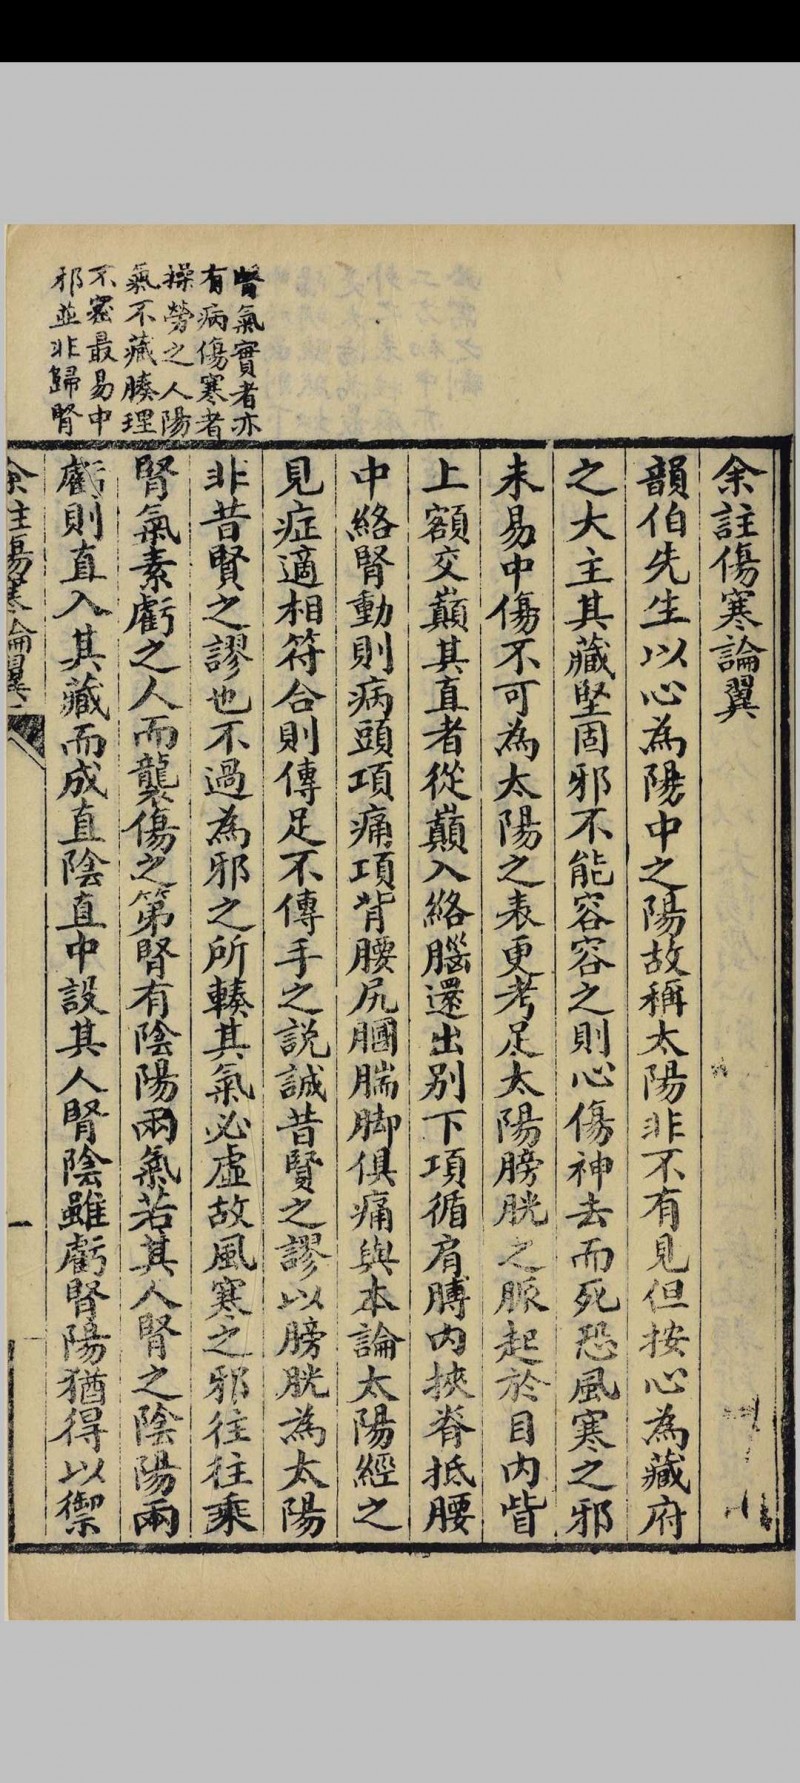 腎氣實者亦
有病傷寒者
操勞之人陽
氣不藏腠理
不密最易中
邪並非歸腎
余註傷寒論翼
韻伯先生以心為陽中之陽故稱太陽非不有見但按心為藏府
之大主其藏堅固邪不能容容之則心傷神去而死恐風寒之邪
未易中傷不可為太陽之表更考足太陽膀胱之脈起於目內眥
上額交巔其直者從巔入絡腦還出別下項循肩膊內挾脊抵腰
中絡腎動則病頭項痛項背腰尻膕腨脚俱痛與本論太陽經之
見症適相符合則傳足不傳手之説誠昔賢之謬以膀胱為太陽
非昔賢之謬也不過為邪之所輳其氣必虛故風寒之邪往往乘
腎氣素虧之人而襲傷之第腎有陰陽兩氣若其人腎之陰陽兩
虧則直入其藏而成直陰直中設其人腎陰雖虧腎陽猶得以禦
余註傷寒論翼
一